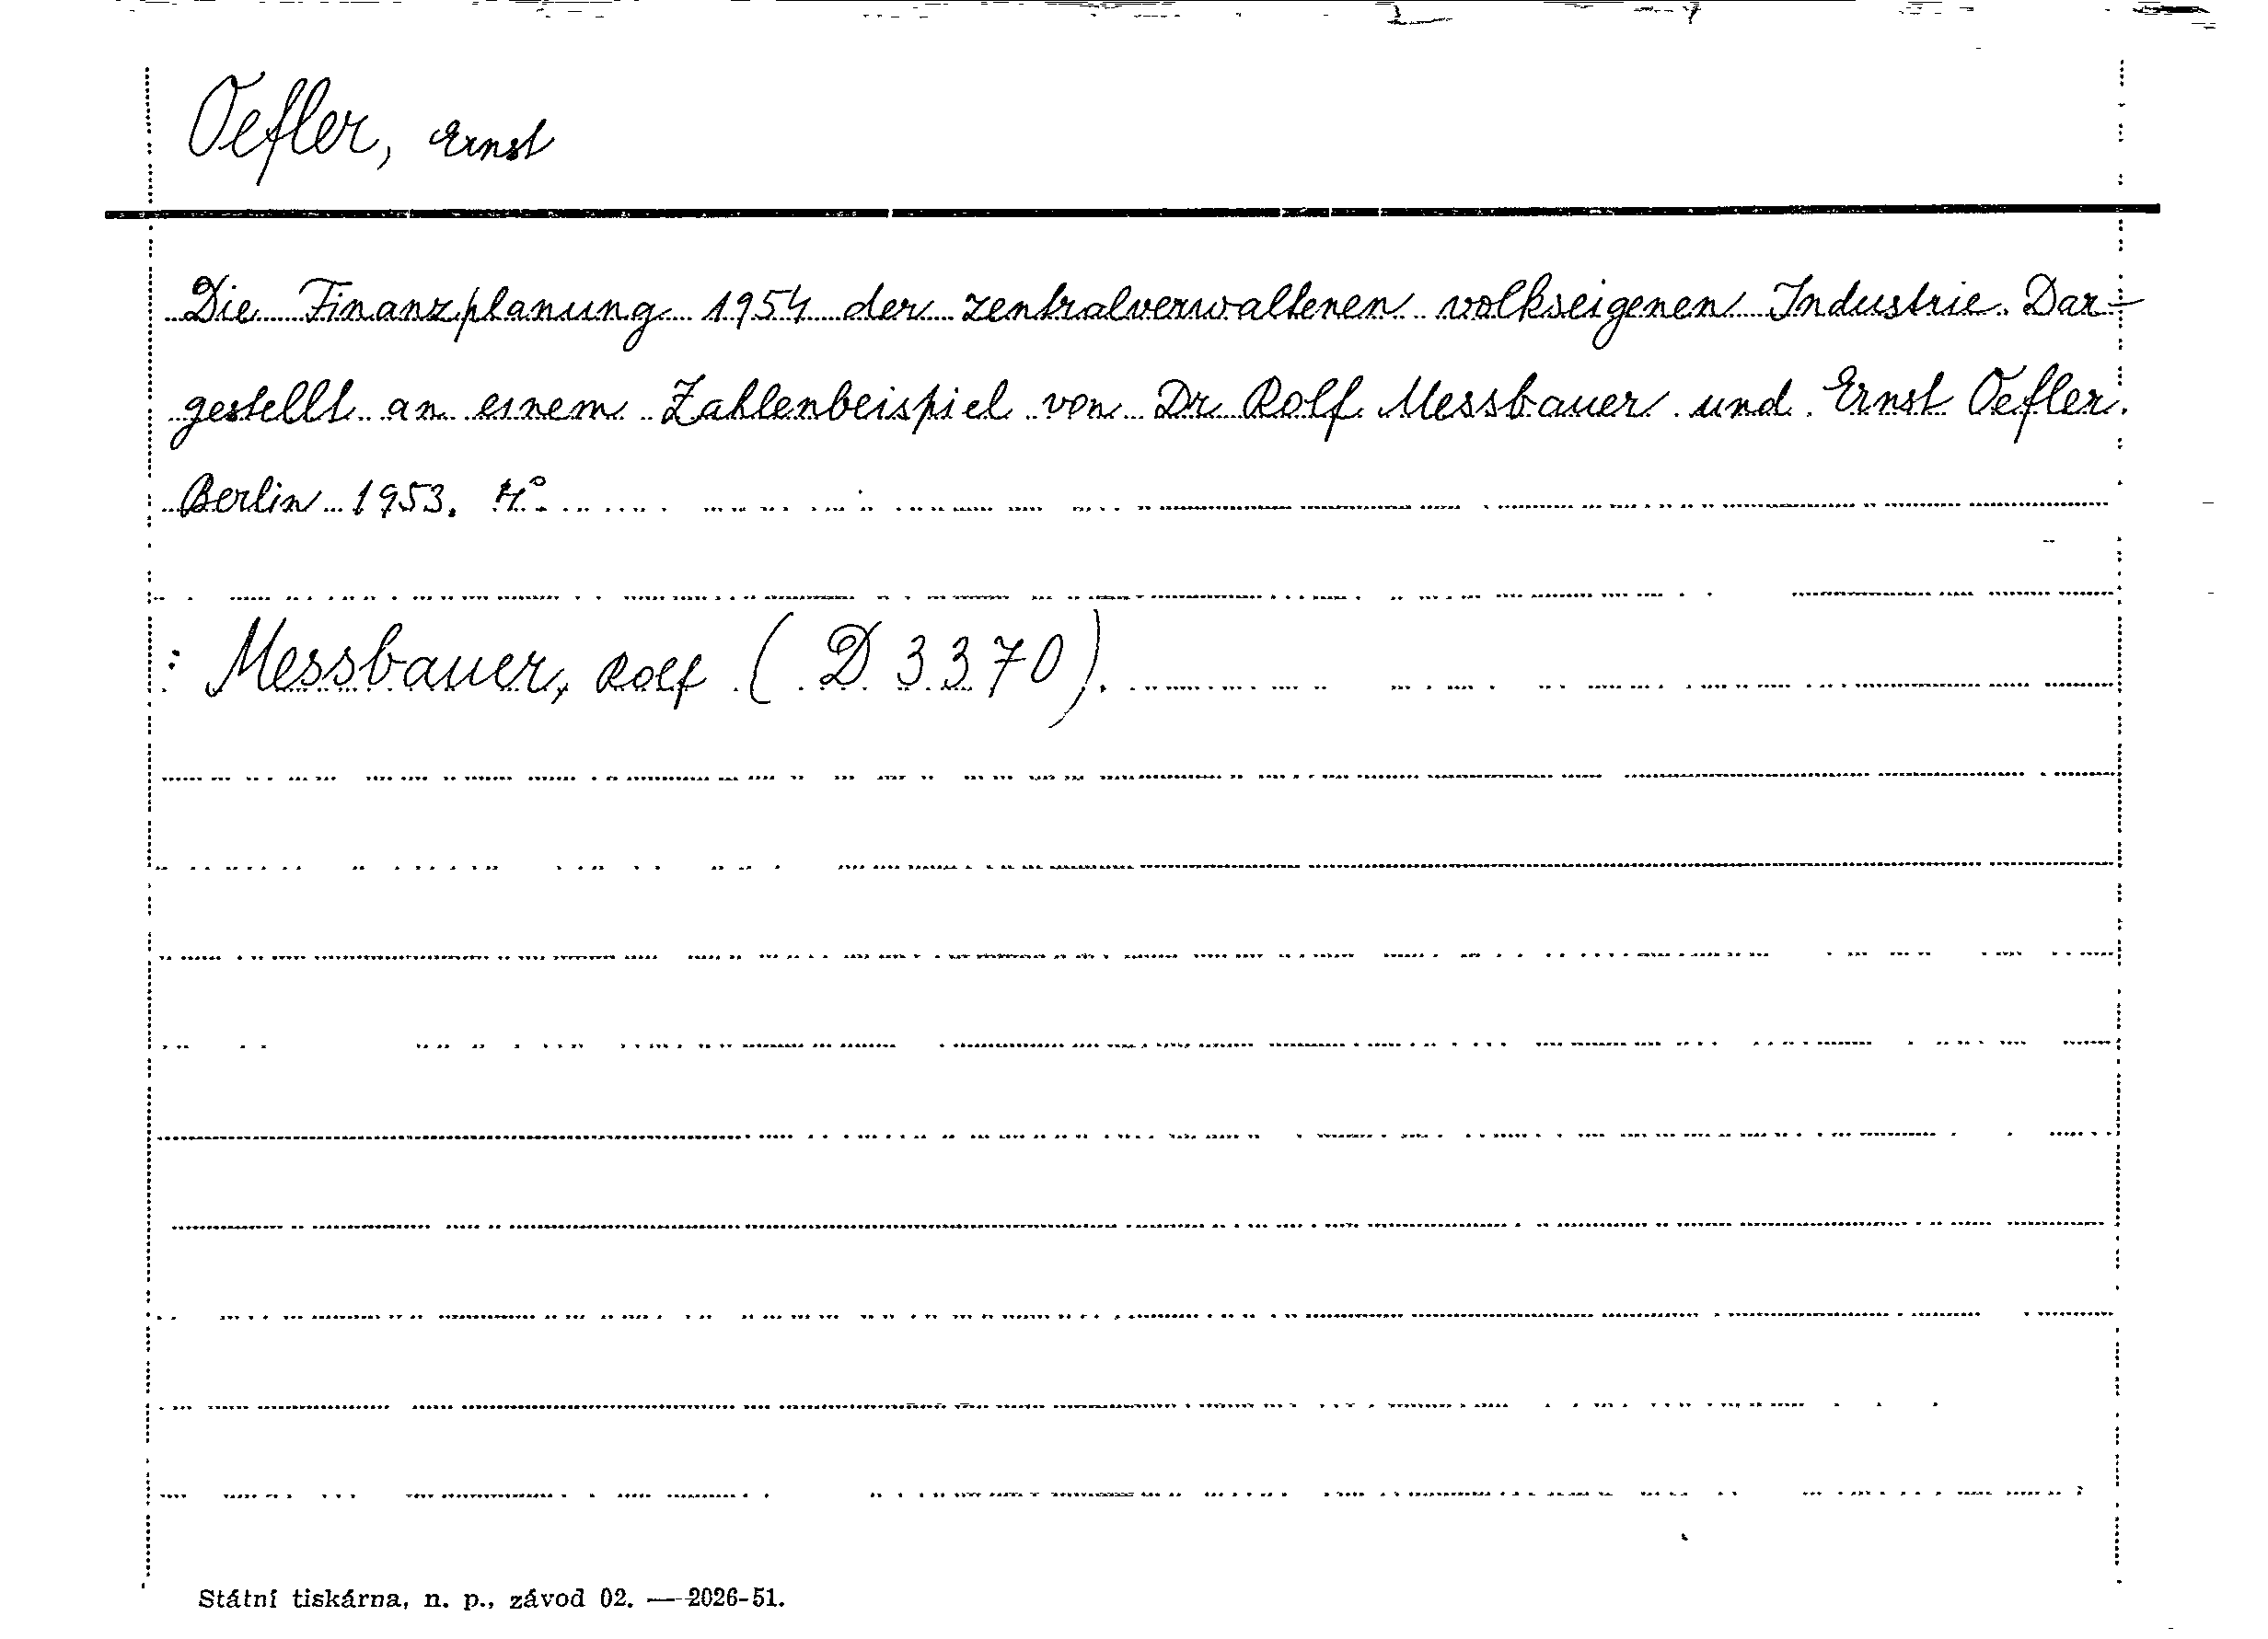 Oefler, Ernst
Die Finanzplanung 1954 der zentralverwaltenen volkseigenen Industrie. Dar-
gestellt an einem Zahlenbeispiel von Dr Rolf Messbauer und Ernst Oefler.
Berlin 1953. 4°.
: Messbauer, Rolf (D 3370).
Státní tiskárna, n. p., závod 02. — 2026-51.